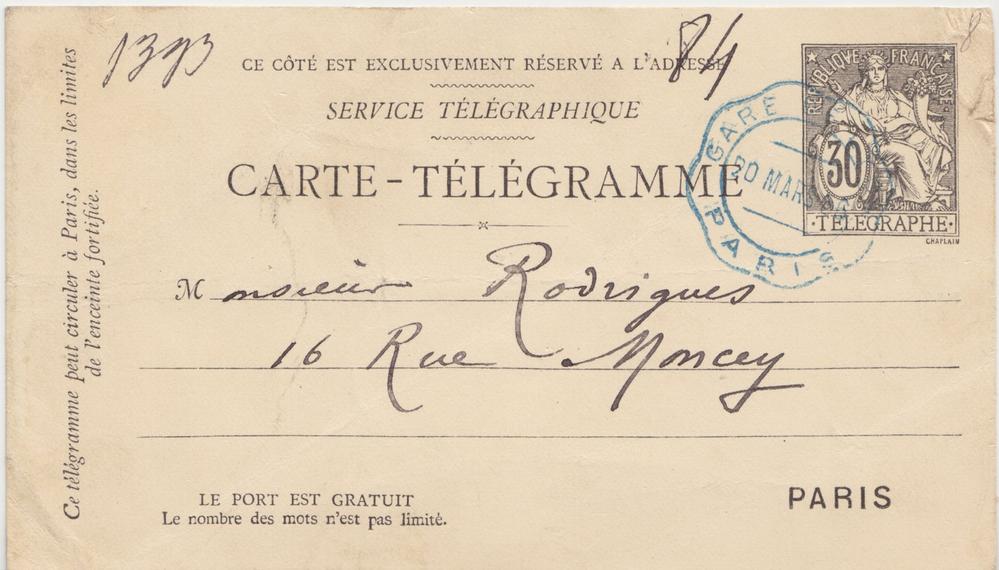 1393
84
8
CE CÔTÉ EST EXCLUSIVEMENT RÉSERVÉ A L'ADRESSE
SERVICE TÉLÉGRAPHIQUE
CARTE-TÉLÉGRAMME
REPUBLIQUE FRANÇAISE
30
·TÉLÉGRAPHE·
CHAPLAIN
GARE
20 MARS
PARIS
Monsieur Rodrigues
16 Rue Moncey
LE PORT EST GRATUIT
Le nombre des mots n'est pas limité.
PARIS
Ce télégramme peut circuler à Paris, dans les limites
de l'enceinte fortifiée.